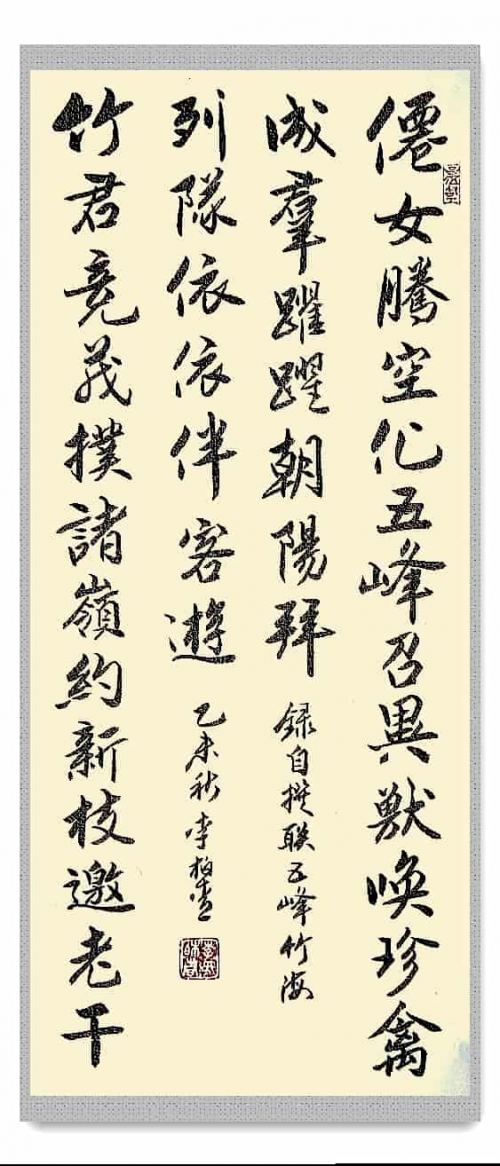 僊女騰空化五峰召異獸喚珍禽
成羣躍躍朝陽拜
録自撰联五峰竹海
竹君竞茂撲諸嶺約新枝邀老干
列隊依依伴客遊
乙未秋李栢